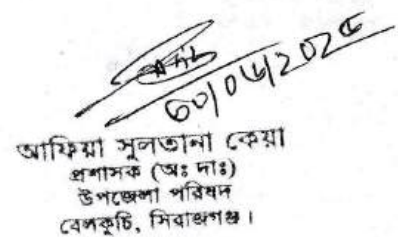 আফিয়া সুলতানা কেয়া
প্রশাসক (অঃ দাঃ)
উপজেলা পরিষদ
বেলকুচি, সিরাজগঞ্জ।